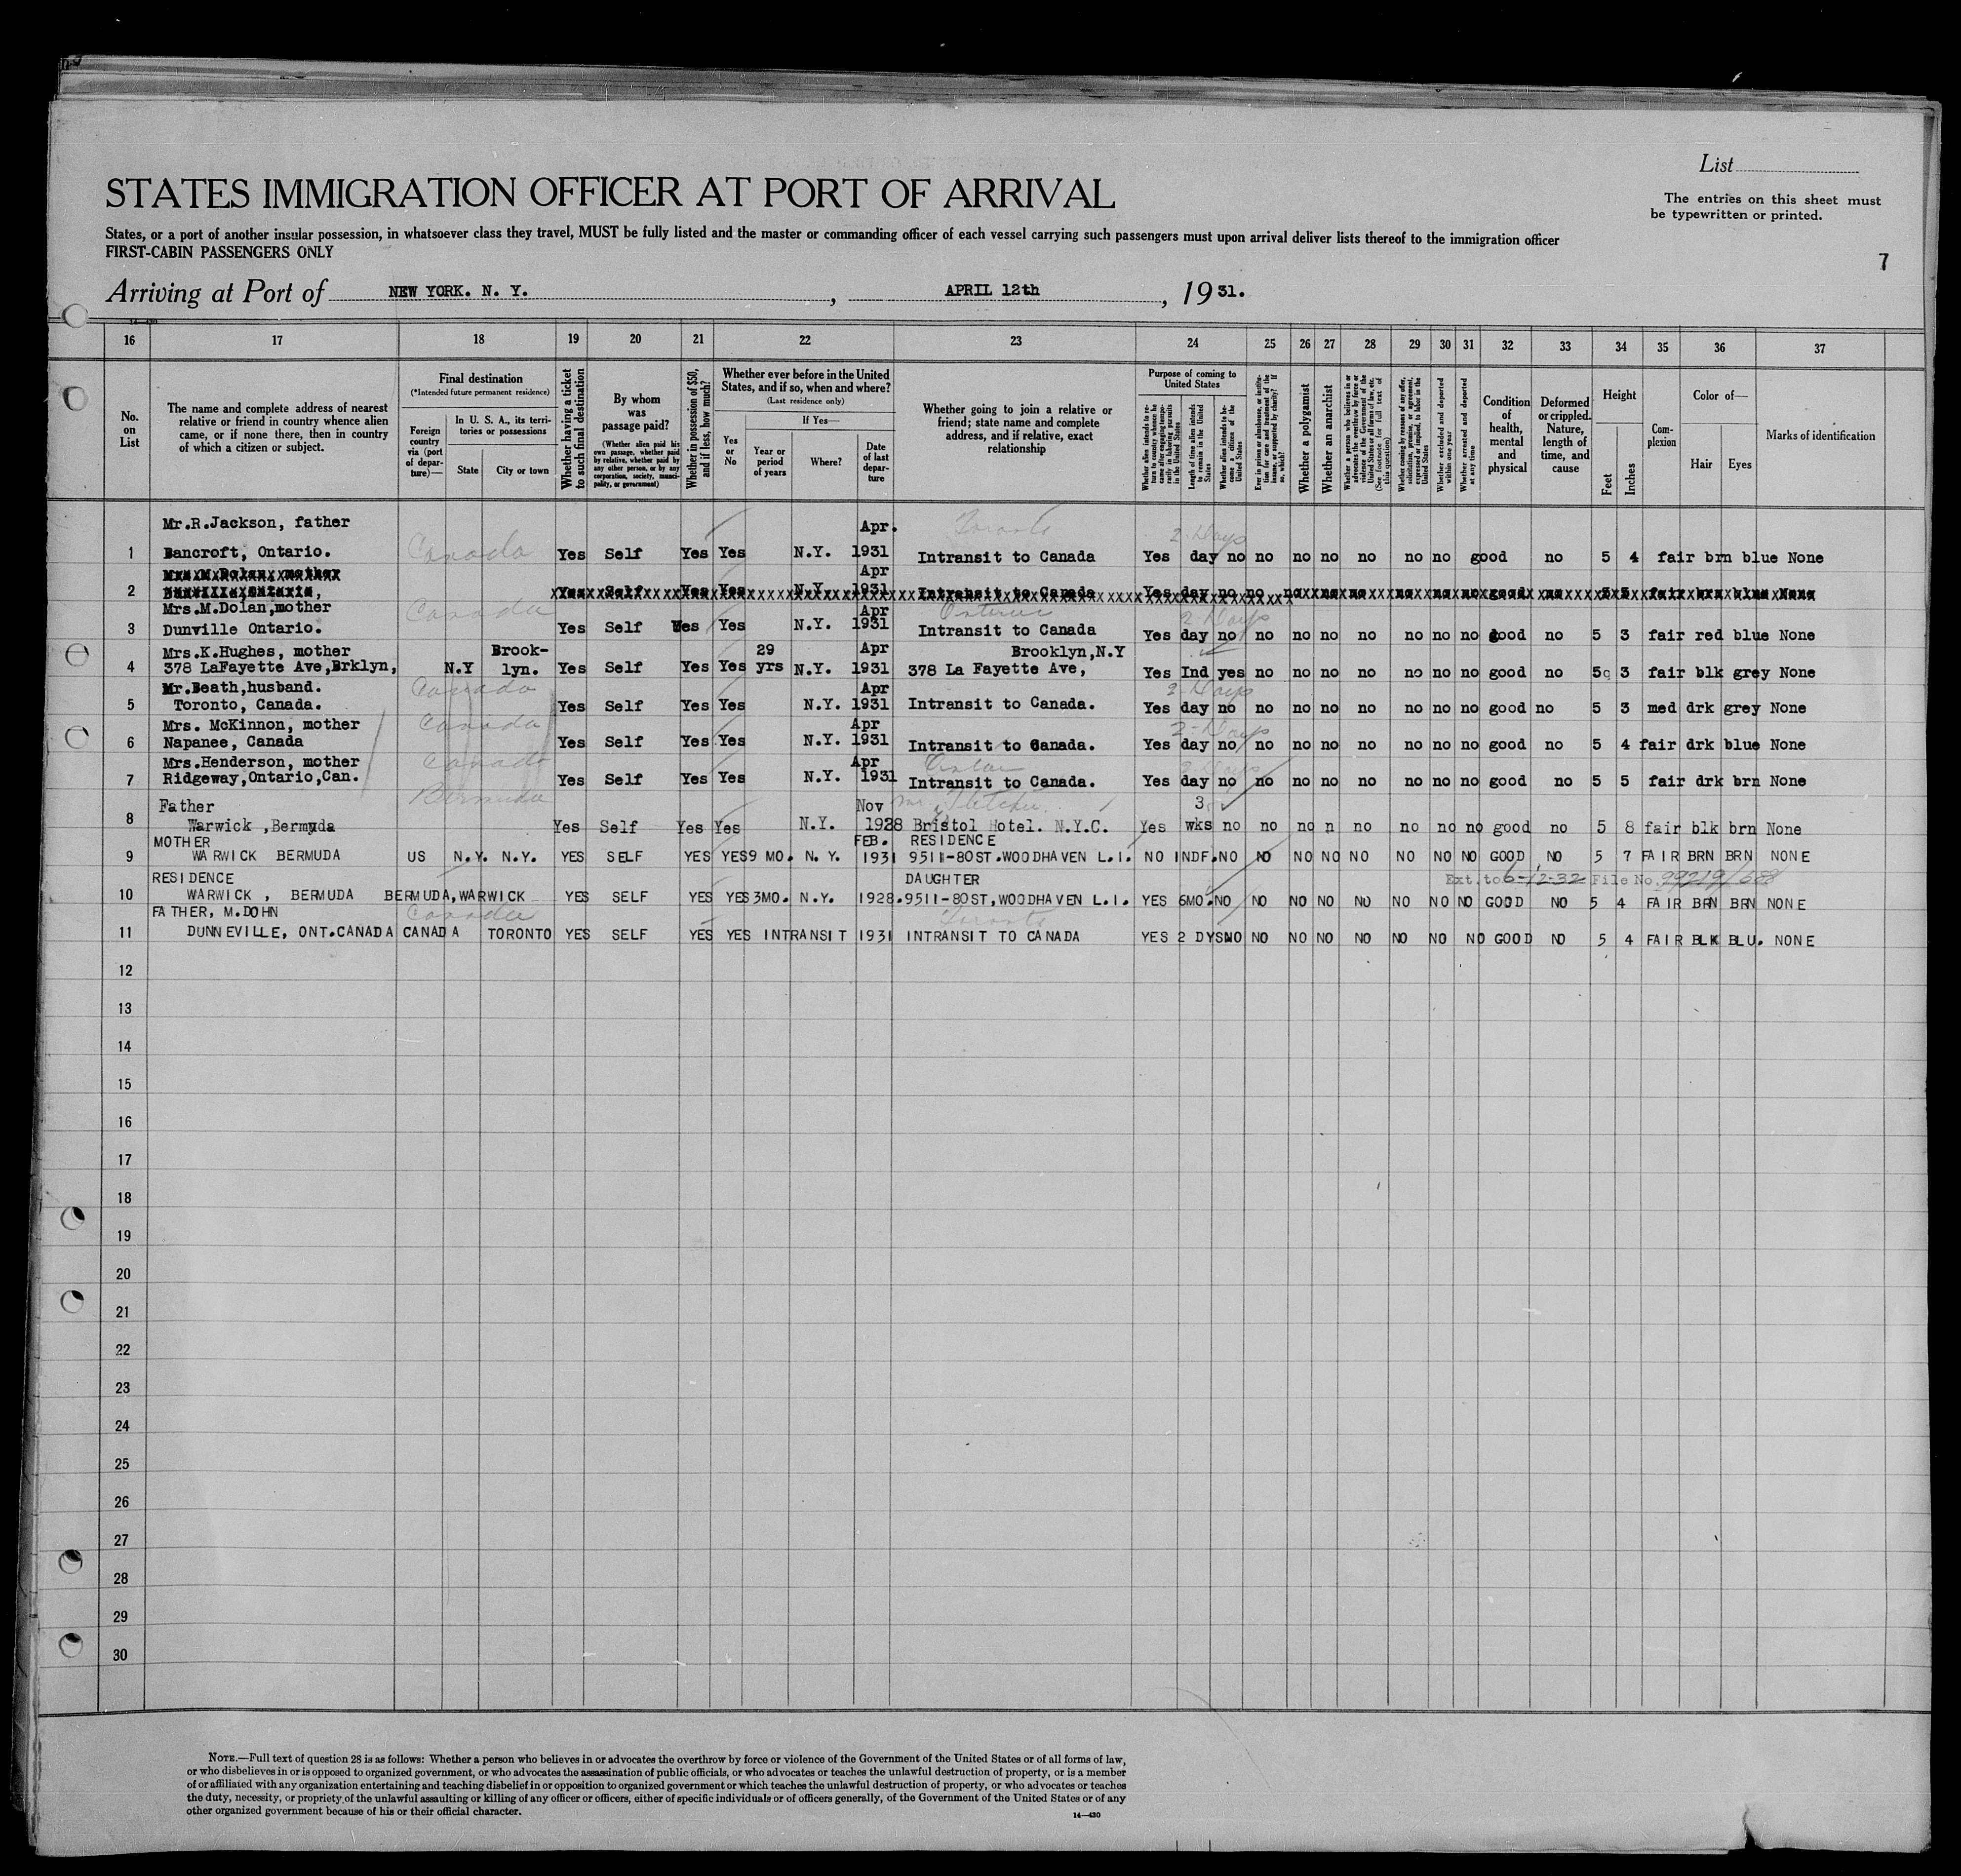 List
STATES IMMIGRATION OFFICER AT PORT OF ARRIVAL
The entries on this sheet must
be typewritten or printed.
States, or a port of another insular possession, in whatsoever class they travel, MUST be fully listed and the master or commanding officer of each vessel carrying such passengers must upon arrival deliver lists thereof to the immigration officer
FIRST-CABIN PASSENGERS ONLY
7
Arriving at Port of NEW YORK. N. Y. , APRIL 12th , 1931.
16 17 18 19 20 21 22 23 24 25 26 27 28 29 30 31 32 33 34 35 36 37
No. on List
The name and complete address of nearest relative or friend in country whence alien came, or if none there, then in country of which a citizen or subject.
Final destination
(*Intended future permanent residence)
Foreign country via (port of departure)—
In U. S. A., its territories or possessions
State
City or town
Whether having a ticket to such final destination
By whom was passage paid?
(Whether alien paid his own passage, whether paid by relative, whether paid by any other person, or by any corporation, society, municipality, or government)
Whether in possession of $50, and if less, how much?
Whether ever before in the United States, and if so, when and where?
(Last residence only)
Yes or No
If Yes—
Year or period of years
Where?
Date of last departure
Whether going to join a relative or friend; state name and complete address, and if relative, exact relationship
Purpose of coming to United States
Whether alien intends to return to country whence he came after engaging temporarily in laboring pursuits in the United States
Length of time alien intends to remain in the United States
Whether alien intends to become a citizen of the United States
Ever in prison or almshouse, or institution for care and treatment of the insane, or supported by charity? If so, which?
Whether a polygamist
Whether an anarchist
Whether a person who believes in or advocates the overthrow by force or violence of the Government of the United States or all forms of law, etc. (See footnote for full text of this question)
Whether coming by reasons of any offer, solicitation, promise, or agreement, expressed or implied, to labor in the United States
Whether excluded and deported within one year
Whether arrested and deported at any time
Condition of health, mental and physical
Deformed or crippled. Nature, length of time, and cause
Height
Feet
Inches
Complexion
Color of—
Hair
Eyes
Marks of identification
Mr.R.Jackson, father Apr. Toronto 2 Days
1 Bancroft, Ontario. Canada Yes Self Yes Yes N.Y. 1931 Intransit to Canada Yes day no no no no no no no good no 5 4 fair brn blue None
Mrs M.Dolan, mother Apr
2 Dunville,Ontario, Yes Self Yes Yes N.Y. 1931 Intransit to Canada Yes day no no no no no no no no good no 5 3 fair brn blue None
Mrs.M.Dolan,mother Canada Apr 2 Days
3 Dunville Ontario. Yes Self Yes Yes N.Y. 1931 Intransit to Canada Yes day no no no no no no no no good no 5 3 fair red blue None
Mrs.K.Hughes, mother Brook- 29 Apr Brooklyn,N.Y
4 378 LaFayette Ave,Brklyn, N.Y lyn. Yes Self Yes Yes yrs N.Y. 1931 378 La Fayette Ave, Yes Ind yes no no no no no no no good no 5 3 fair blk grey None
Mr.Beath,husband. Canada Apr 2 Days
5 Toronto, Canada. Yes Self Yes Yes N.Y. 1931 Intransit to Canada. Yes day no no no no no no no no good no 5 3 med drk grey None
Mrs. McKinnon, mother Canada Apr 2 Days
6 Napanee, Canada Yes Self Yes Yes N.Y. 1931 Intransit to Canada. Yes day no no no no no no no no good no 5 4 fair drk blue None
Mrs.Henderson, mother Canada Apr 2 Days
7 Ridgeway,Ontario,Can. Yes Self Yes Yes N.Y. 1931 Intransit to Canada. Yes day no no no no no no no no good no 5 5 fair drk brn None
Father Bermuda Nov Mr Fletcher. 3
8 Warwick ,Bermuda Yes Self Yes Yes N.Y. 1928 Bristol Hotel. N.Y.C. Yes wks no no no n no no no no good no 5 8 fair blk brn None
MOTHER FEB. RESIDENCE
9 WARWICK BERMUDA US N.Y. N.Y. YES SELF YES YES 9 MO. N. Y. 1931 9511-80ST.WOODHAVEN L.I. NO INDF.NO NO NO NO NO NO NO NO GOOD NO 5 7 FAIR BRN BRN NONE
RESIDENCE DAUGHTER Ext. to 6-12-32 File No. 99219/688
10 WARWICK , BERMUDA BERMUDA,WARWICK YES SELF YES YES 3MO. N.Y. 1928. 9511-80ST,WOODHAVEN L.I. YES 6MO.NO NO NO NO NO NO NO NO GOOD NO 5 4 FAIR BRN BRN NONE
FATHER, M.DOHN Canada Toronto
11 DUNNEVILLE, ONT.CANADA CANADA TORONTO YES SELF YES YES INTRANSIT 1931 INTRANSIT TO CANADA YES 2 DYS NO NO NO NO NO NO NO NO GOOD NO 5 4 FAIR BLK BLU. NONE
12
13
14
15
16
17
18
19
20
21
22
23
24
25
26
27
28
29
30
NOTE.—Full text of question 28 is as follows: Whether a person who believes in or advocates the overthrow by force or violence of the Government of the United States or of all forms of law,
or who disbelieves in or is opposed to organized government, or who advocates the assassination of public officials, or who advocates or teaches the unlawful destruction of property, or is a member
of or affiliated with any organization entertaining and teaching disbelief in or opposition to organized government or which teaches the unlawful destruction of property, or who advocates or teaches
the duty, necessity, or propriety of the unlawful assaulting or killing of any officer or officers, either of specific individuals or of officers generally, of the Government of the United States or of any
other organized government because of his or their official character.
14—430